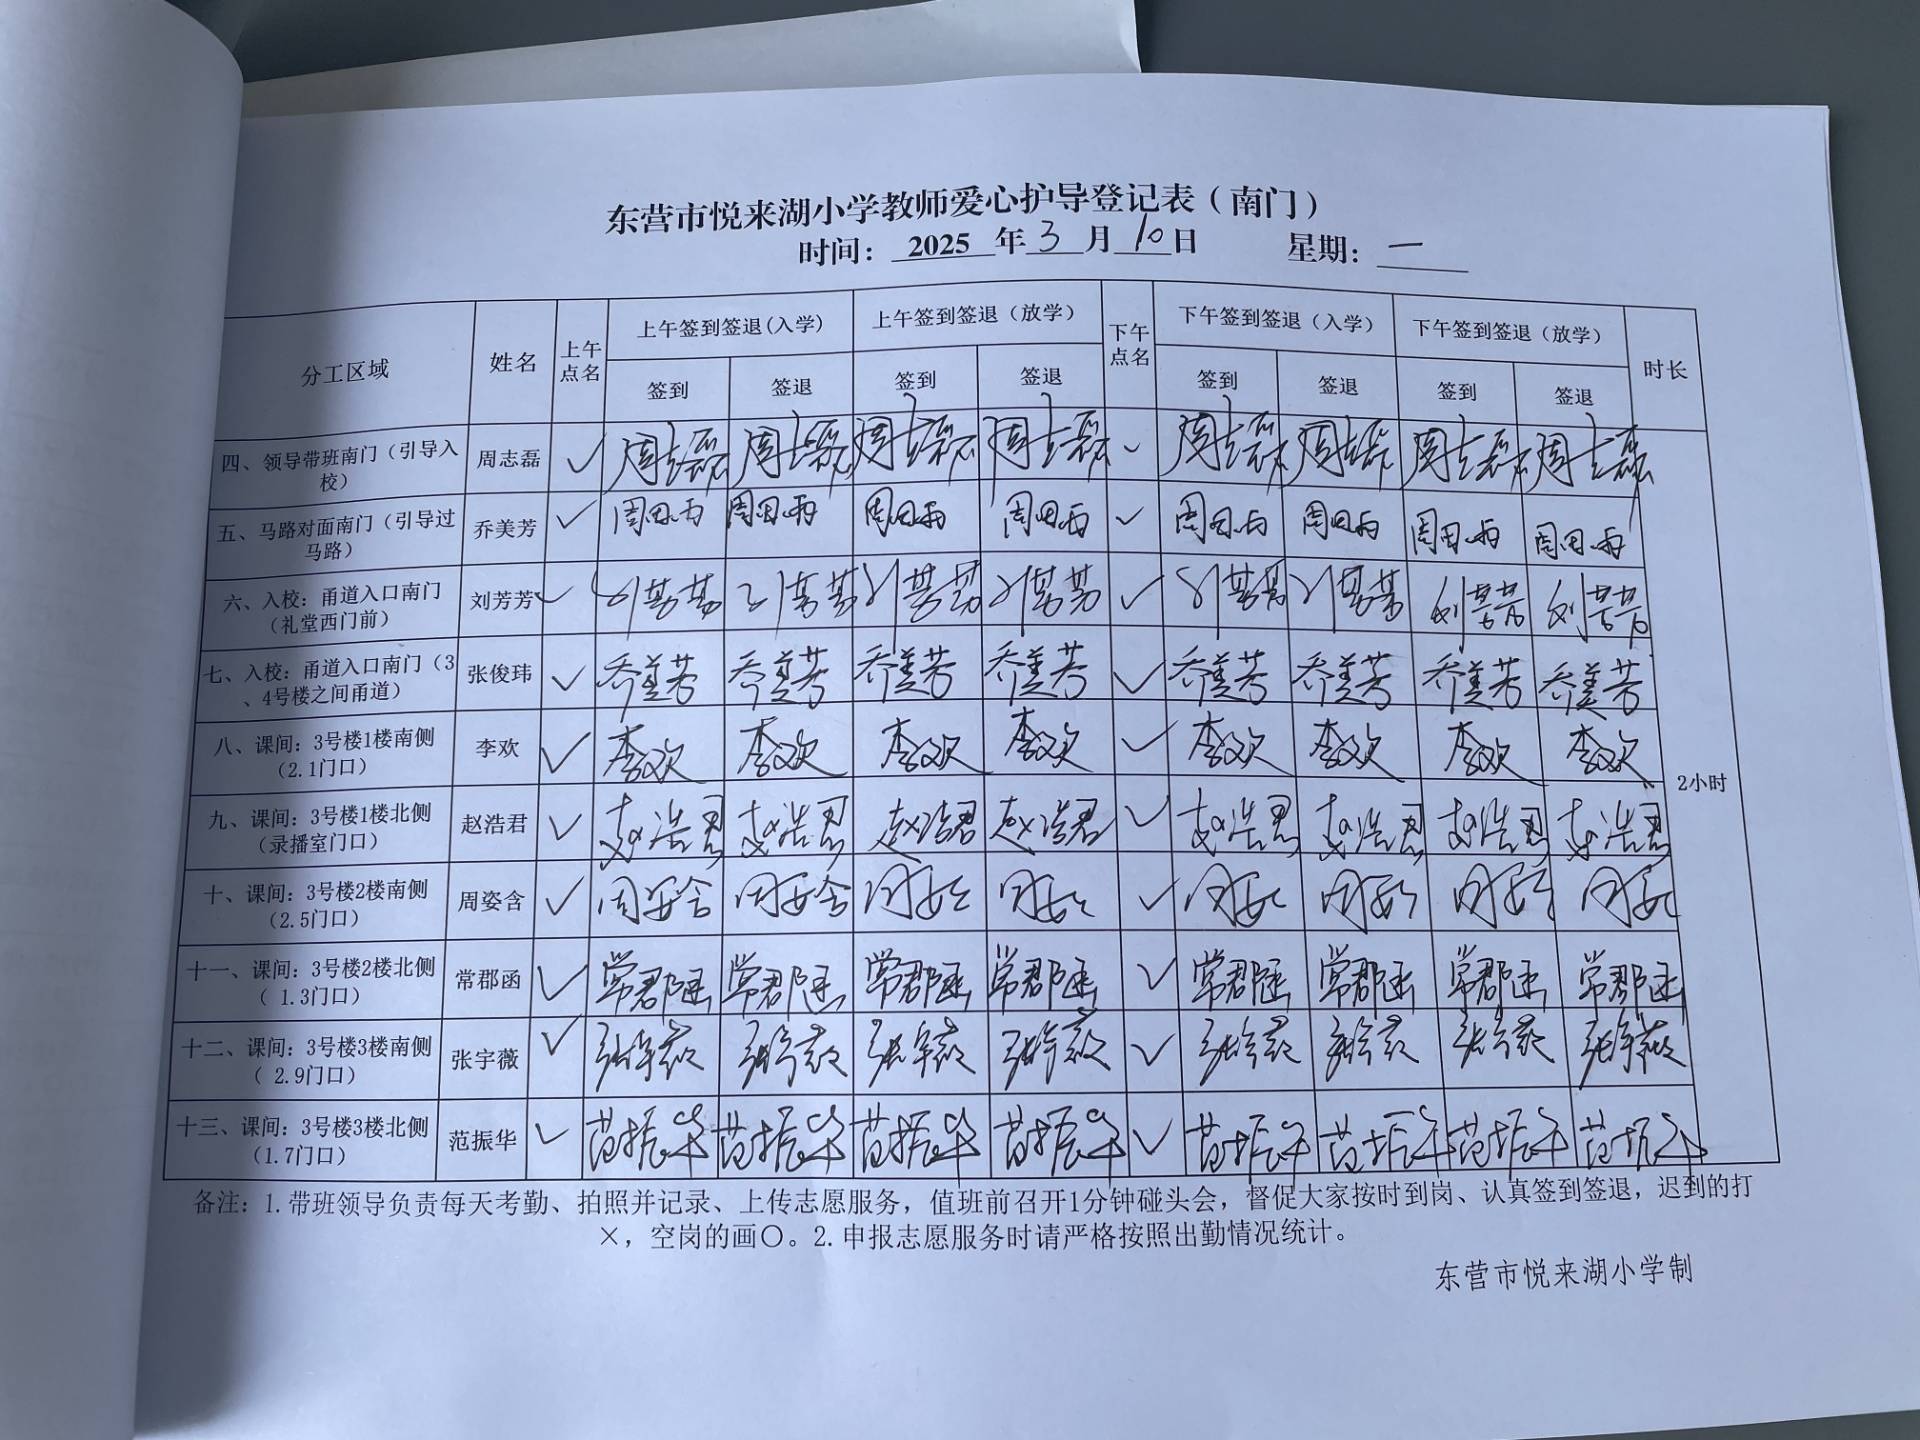 东营市悦来湖小学教师爱心护导登记表（南门）
时间： 2025 年 3 月 10 日 星期： 一
分工区域 姓名 上午点名 上午签到签退(入学) 上午签到签退（放学） 下午点名 下午签到签退（入学） 下午签到签退（放学） 时长
签到 签退 签到 签退 签到 签退 签到 签退
四、领导带班南门（引导入校） 周志磊 ✓ 周志磊 周志磊 周志磊 周志磊 ✓ 周志磊 周志磊 周志磊 周志磊
五、马路对面南门（引导过马路） 乔美芳 ✓ ✓
六、入校：甬道入口南门（礼堂西门前） 刘芳芳 ✓ 刘芳芳 刘芳芳 刘芳芳 刘芳芳 ✓ 刘芳芳 刘芳芳 刘芳芳 刘芳芳
七、入校：甬道入口南门（3、4号楼之间甬道） 张俊玮 ✓ 乔美芳 乔美芳 乔美芳 乔美芳 ✓ 乔美芳 乔美芳 乔美芳 乔美芳
八、课间：3号楼1楼南侧（2.1门口） 李欢 ✓ 李欢 李欢 李欢 李欢 ✓ 李欢 李欢 李欢 李欢
九、课间：3号楼1楼北侧（录播室门口） 赵浩君 ✓ 赵浩君 赵浩君 赵浩君 赵浩君 ✓ 赵浩君 赵浩君 赵浩君 赵浩君
十、课间：3号楼2楼南侧（2.5门口） 周姿含 ✓ 周姿含 周姿含 周姿含 周姿含 ✓ 周姿含 周姿含 周姿含 周姿含
十一、课间：3号楼2楼北侧（ 1.3门口） 常郡函 ✓ 常郡函 常郡函 常郡函 常郡函 ✓ 常郡函 常郡函 常郡函 常郡函
十二、课间：3号楼3楼南侧（ 2.9门口） 张宇薇 ✓ 张宇薇 张宇薇 张宇薇 张宇薇 ✓ 张宇薇 张宇薇 张宇薇 张宇薇
十三、课间：3号楼3楼北侧（1.7门口） 范振华 ✓ 范振华 范振华 范振华 范振华 ✓ 范振华 范振华 范振华 范振华
2小时
备注：1.带班领导负责每天考勤、拍照并记录、上传志愿服务，值班前召开1分钟碰头会，督促大家按时到岗、认真签到签退，迟到的打
×，空岗的画〇。2.申报志愿服务时请严格按照出勤情况统计。
东营市悦来湖小学制